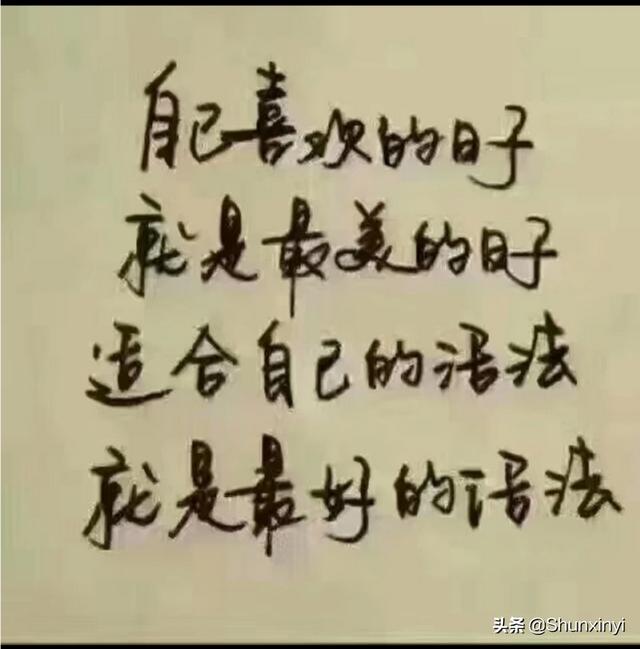 自己喜欢的日子
就是最美的日子
适合自己的活法
就是最好的活法
头条 @Shunxinyi